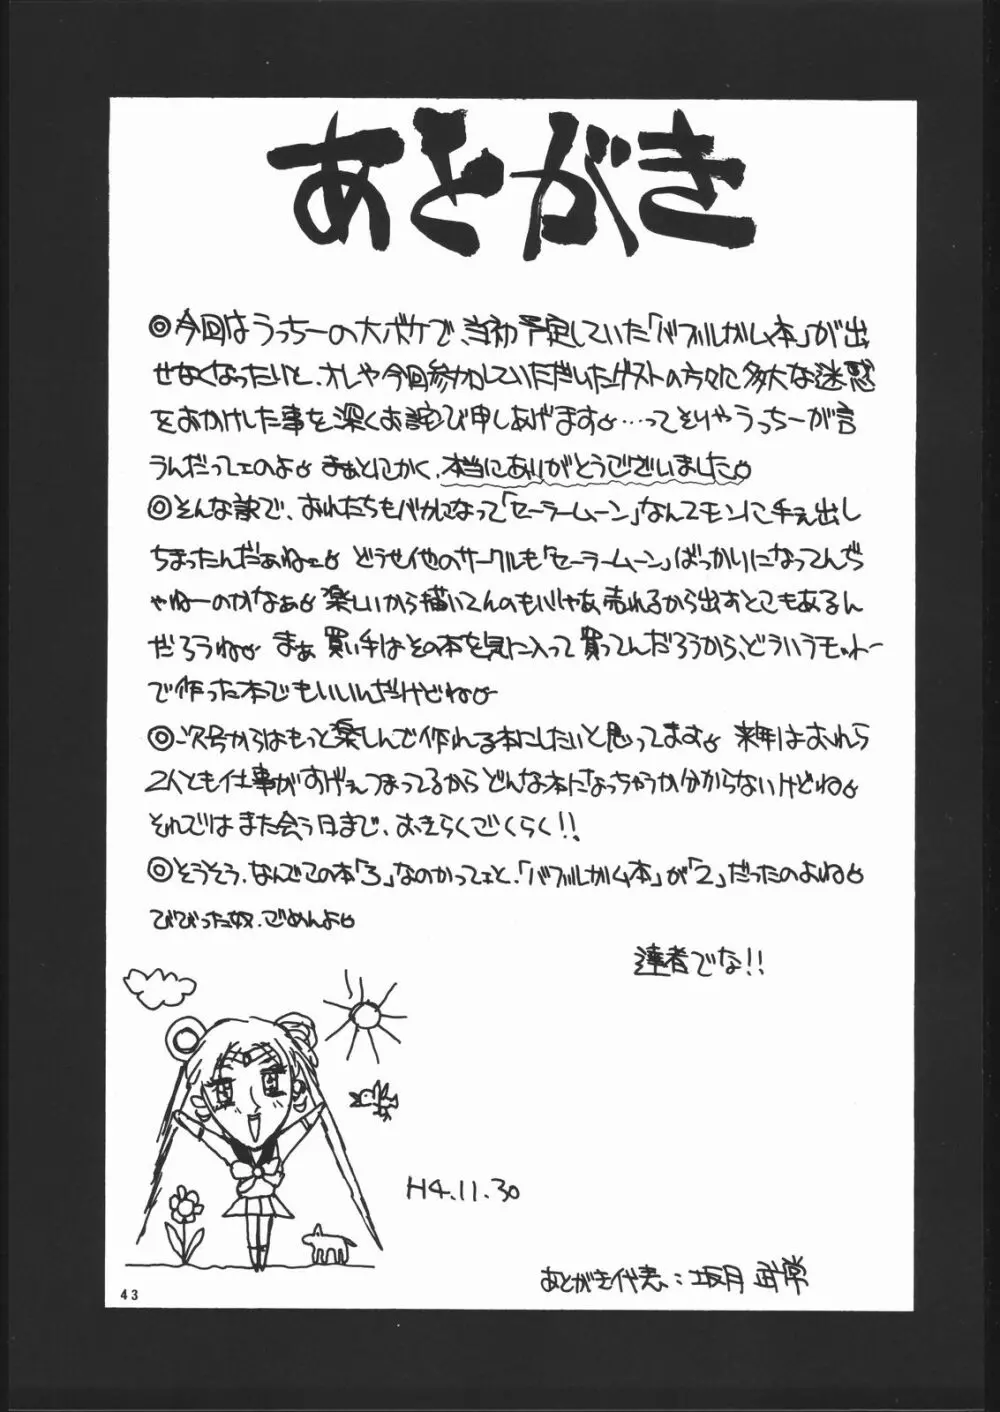 あとがき
◎今回はうっちーの大ボケで、当初予定していた「バブルガム本」が出
せなくなったいと、オレや今回参加していただいたゲストの方々に多大な迷惑
をおかけした事を深くお詫び申しあげます。…ってそりゃうっちーが言
うんだってェのよ。まぁとにかく、本当にありがとうございました。
◎そんな訳で、おれたちもバカになって「セーラームーン」なんてモンに手ぇ出し
ちまったんだぁねェ。どうせ他のサークルも「セーラームーン」ばっかりになってんぢ
ゃねーのかなぁ。楽しいから描いてんのもいじゃあ売れるから出すとこもあるん
だろうね。まぁ買い手はその本を気に入って買ってんだろうから、どういうモッカー
で作った本でもいいんだけどね。
◎次号からはもっと楽しんで作れる本にしたいと思ってます。来年はおれら
2人とも仕事がすげぇつまってるからどんな本になっちゃうか分からないけどね。
それではまた会う日まで、おきらくごくらく!!
◎そうそう、なんでこの本「3」なのかってェと、「バブルガム本」が「2」だったのよね。
びびった奴、ごめんよ。
達者でな!!
H4.11.30
あとがき代表:坂月武常
43